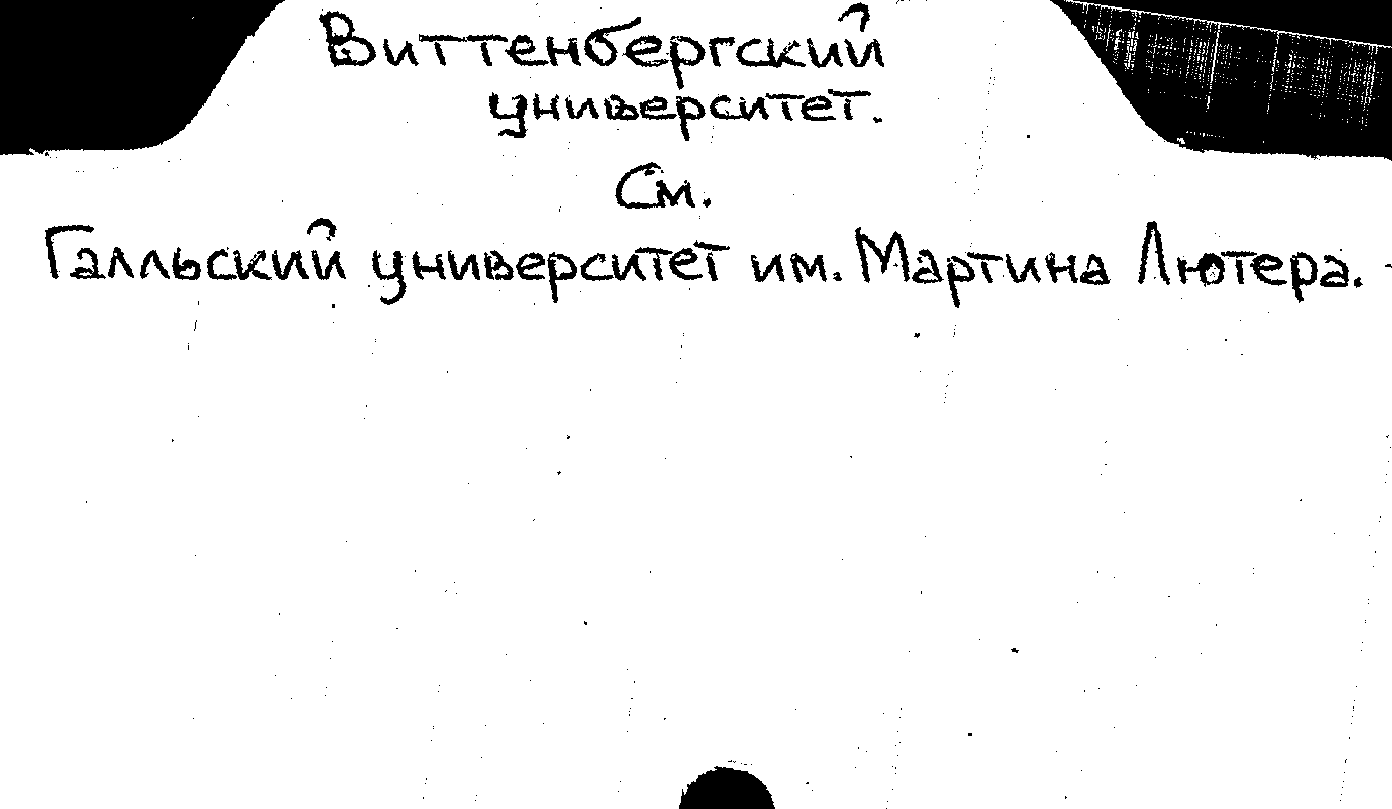 Виттенбергский
университет.
См.
Галльский университет им. Мартина Лютера.